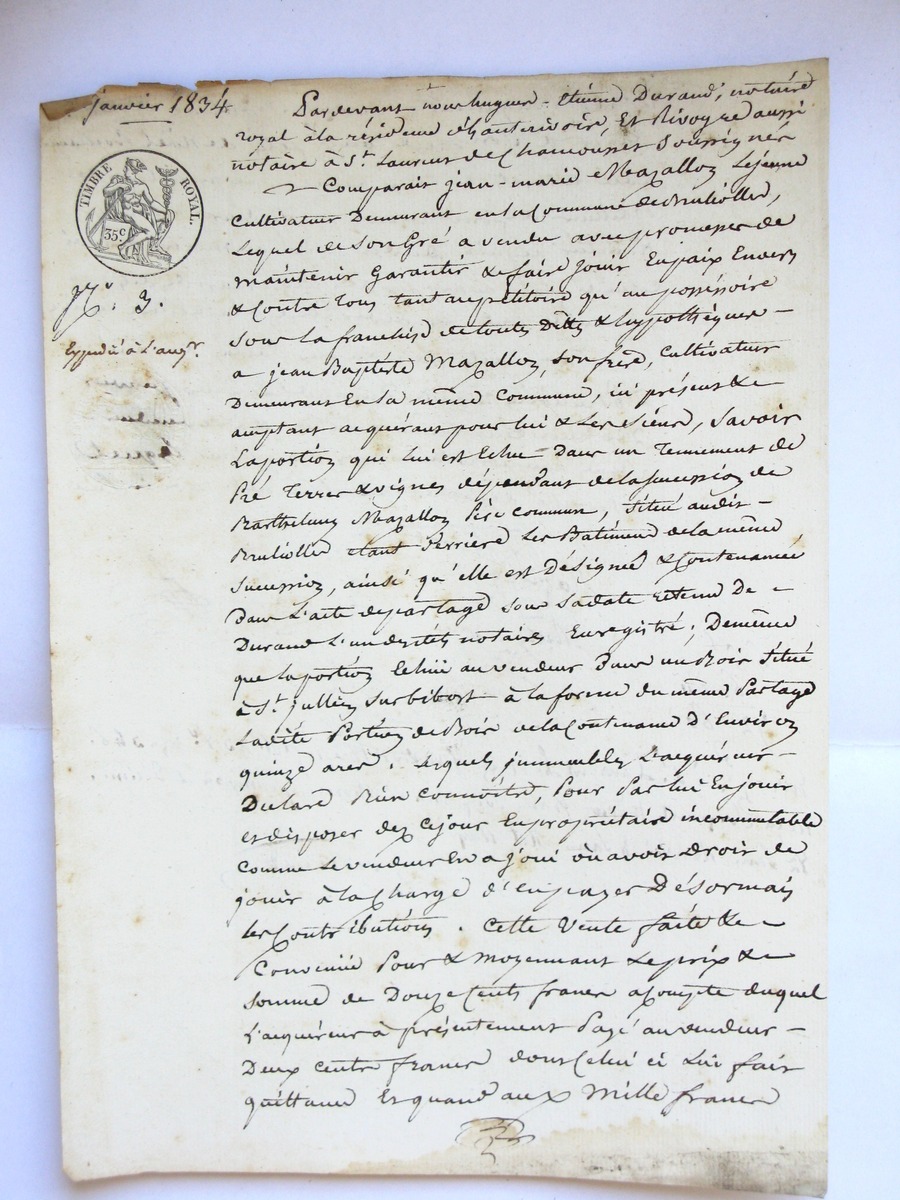 janvier 1834
TIMBRE ROYAL.
35c
N°. 3.
Expédié à L'acqr.
Pardevant nous hugues-Etienne Durand, notaire
royal à la résidence d'hauterivoire, Et Rivoyre aussi
notaire à St. Laurent de Chamousset Soussignés
Comparait jean-marie Mazallon Lejeune
Cultivateur Demeurant en la Commune de Brullioles,
Lequel de Son Gré a vendu avec promesse de
maintenir Garantir & faire jouir En paix Envers
& Contre Tous tant au pétitoire qu'au possessoire
Sous la franchise de toutes Dettes & hypothèques -
a jean Baptiste Mazallon, Son frère, Cultivateur
Demeurant En la même Commune, ici présent &
acceptant acquérant pour lui & Les Siens, Savoir
La portion qui lui est Echue Dans un Tennement de
Pré Terres & vignes dépendant de la Succession de
Barthelemy Mazallon Père commun, Situé audit -
Brullioles Derrière Les Batimens de la même
Succession, ainsi qu'elle est Désignée & Contenancée
Dans L'acte de partage Sous Sa date retenu De -
Durand L'un desdits notaires Enregistré; De même
que la portion Echue au vendeur Dans un Bois Situé
à St. jullien Sur bibost à la forme du même Partage
Ladite Portion de Bois de la Contenance D'Environ
quinze ares. Lesquels jmmeubles L'acquéreur -
Déclare Bien connoître, Pour Par lui En jouir
et disposer dez Cejour En propriétaire incommutable
Comme Le vendeur En a joui ou avoit Droit de
jouir à la Charge d'En payer Désormais
Les Contributions. Cette Vente faite & -
Convenüe Pour & Moyennant Le prix &
Somme de Douze Cents francs acompte duquel
L'acquéreur à présentement Payé au vendeur -
Deux cents francs dont Celui ci Lui fait
quittance Et quand aux Mille francs